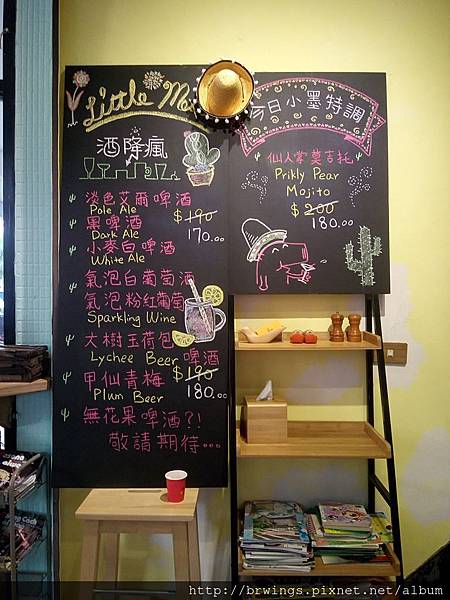 Little Me
酒降瘋
淡色艾爾啤酒
Pale Ale
$190
黑啤酒
Dark Ale
170.00
小麥白啤酒
White Ale
氣泡白葡萄酒
氣泡粉紅葡萄
Sparkling Wine
大樹玉荷包啤酒
Lychee Beer
甲仙青梅
$190
Plum Beer
180.00
無花果啤酒?!
敬請期待...
今日小墨特調
仙人掌莫吉托
Prikly Pear
Mojito
$200
180.00
http://brwings.pixnet.net/album